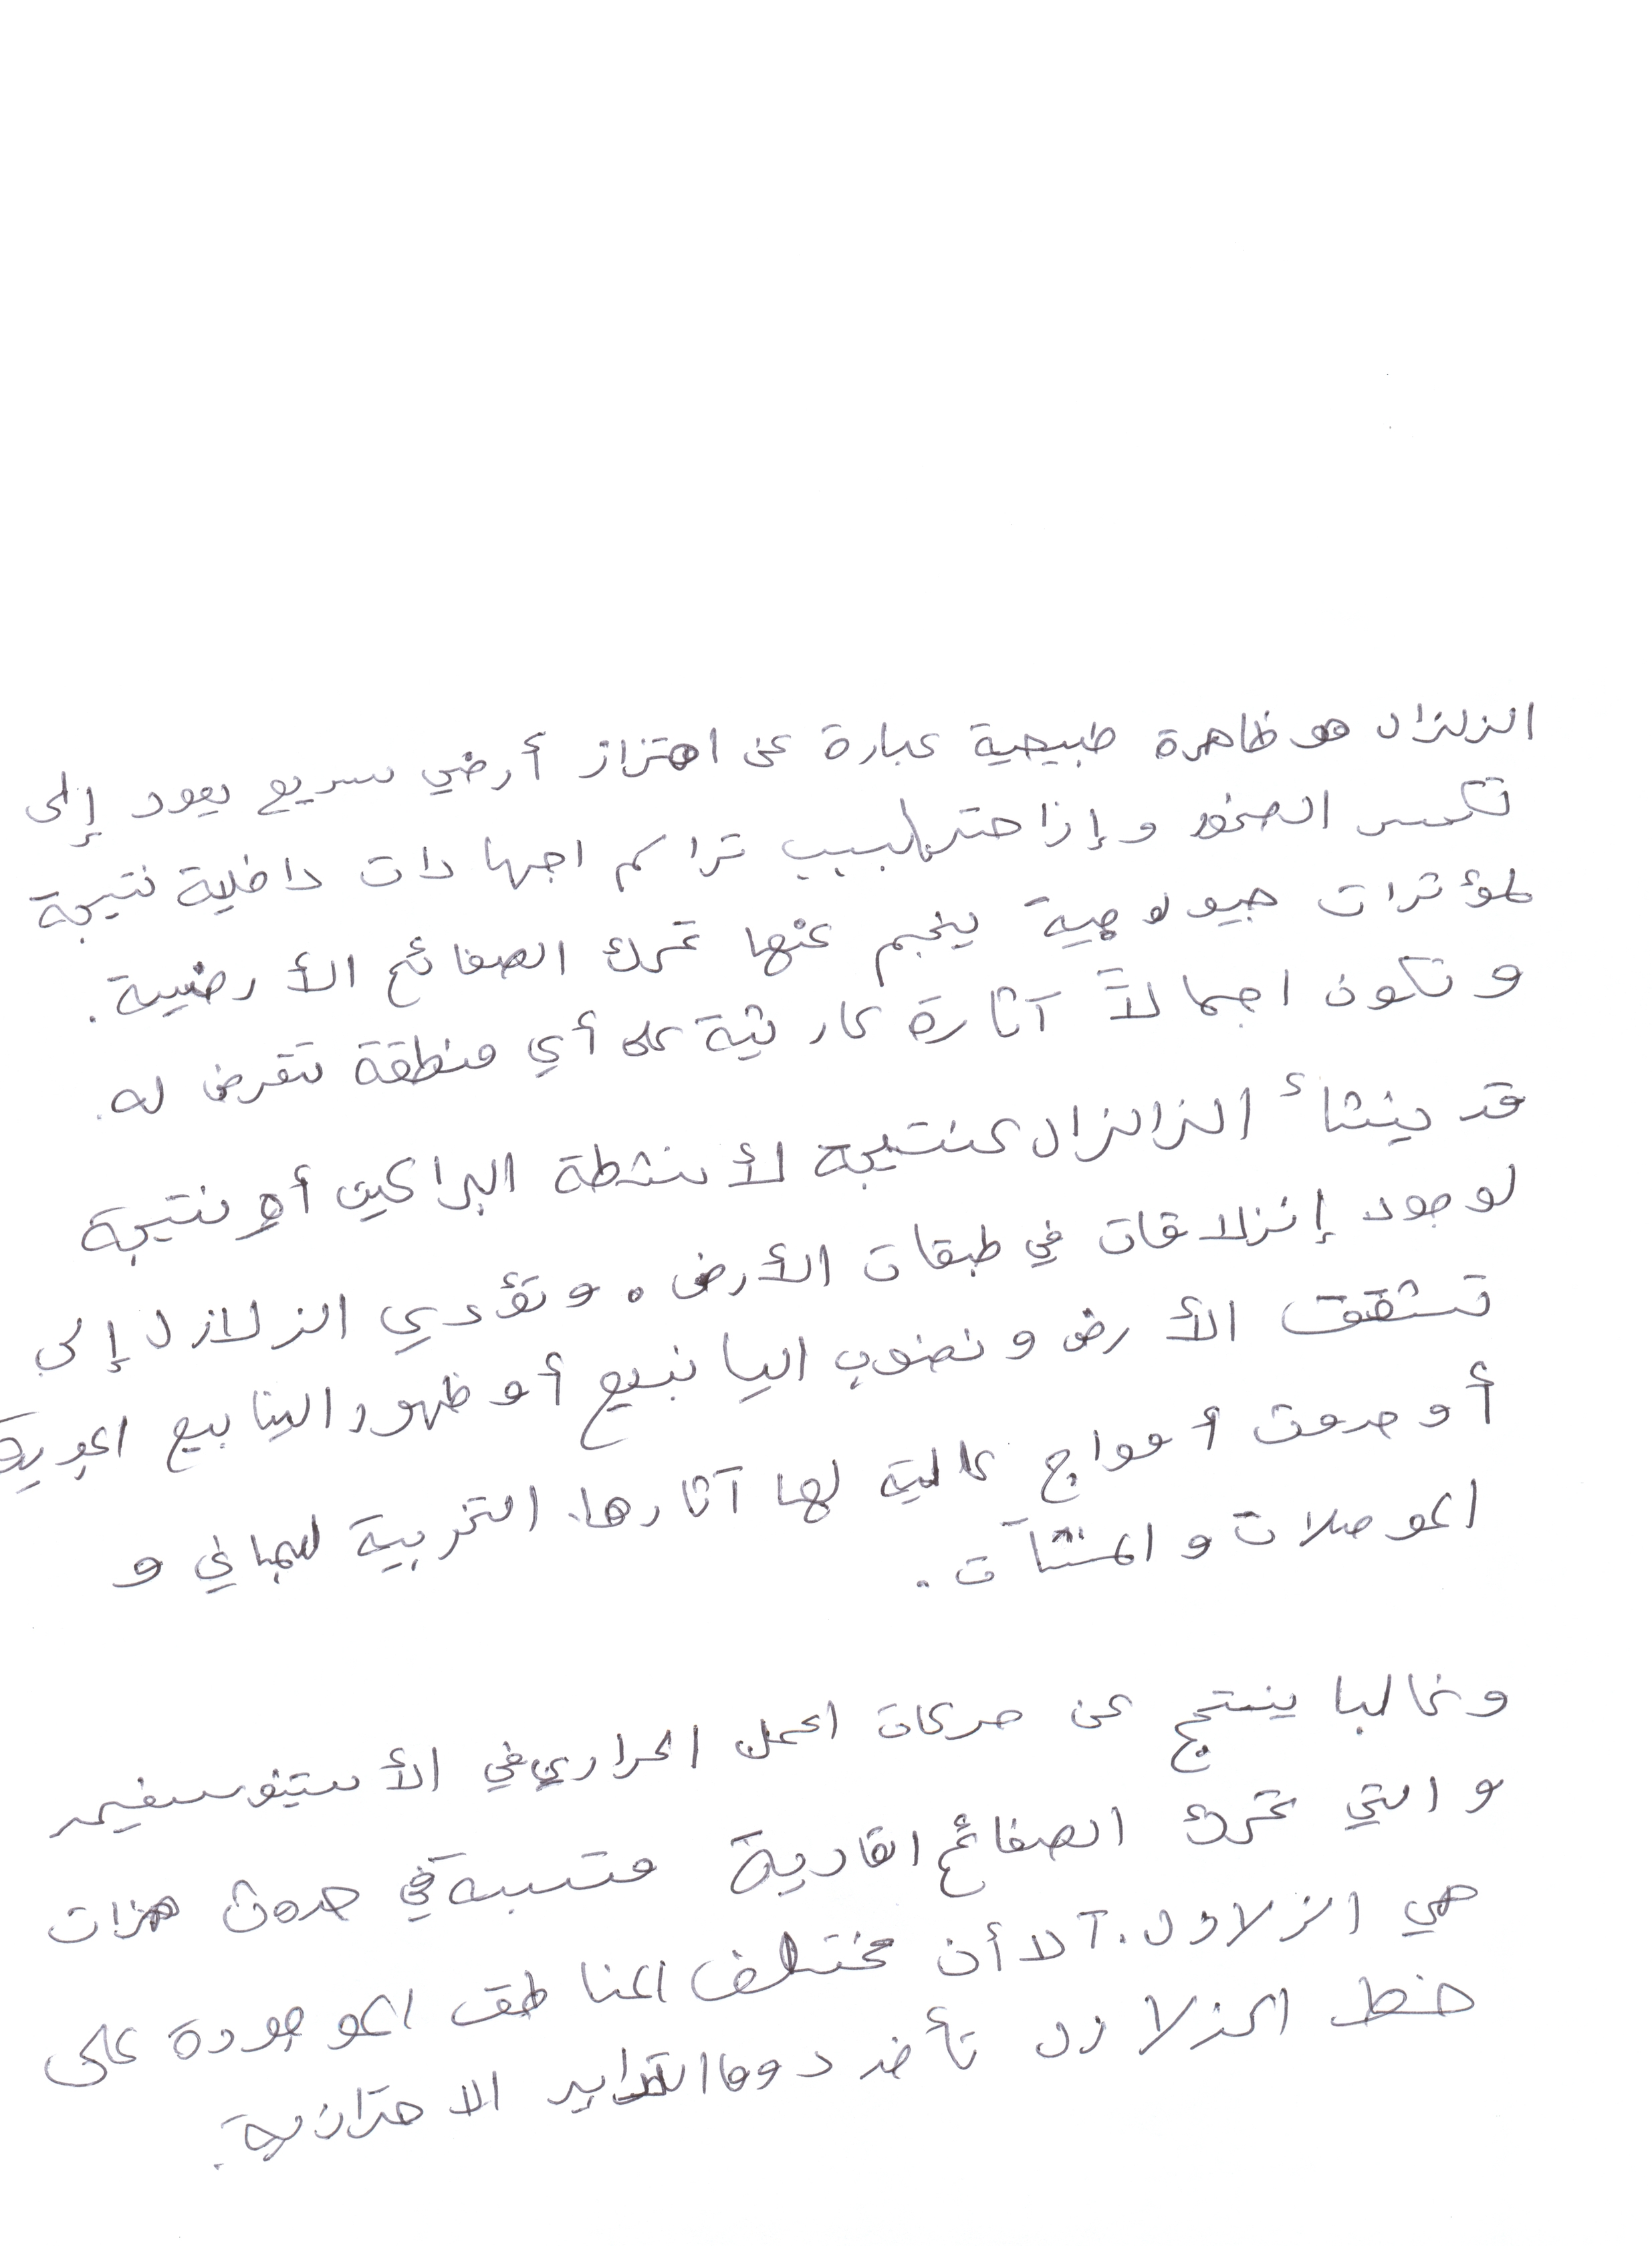 الزلزال هو ظاهرة طبيعية عبارة عن اهتزاز أرضي سريع يعود إلى
تكسر الصخور وإزاحتها بسبب تراكم اجهادات داخلية نتيجة
لمؤثرات جيولوجية ينجم عنها تحرك الصفائح الأرضية.
و تكون اجمالاً آثارة كارثية على أي منطقة تتعرض له.
قد ينشأ الزلزال كنتيجة لأنشطة البراكين أو نتيجة
لوجود إنزلاقات في طبقات الأرض. وتؤدي الزلازل إلى
تشقق الأرض ونضوب الينابيع أو ظهور الينابيع الجديدة
أو حدوث أمواج عالية لها آثارها التخريبية للمباني و
الموصلات و المنشآت.
وغالبا ينتج عن حركات الحمل الحراري في الأستينوسفير
و التي تحرك الصفائح القارية متسببة في حدوث هزات
هي الزلازل. آلا أن مختلف المناطق الموجودة على
خط الزلازل تأخذ دوما التدابير الاحترازية.